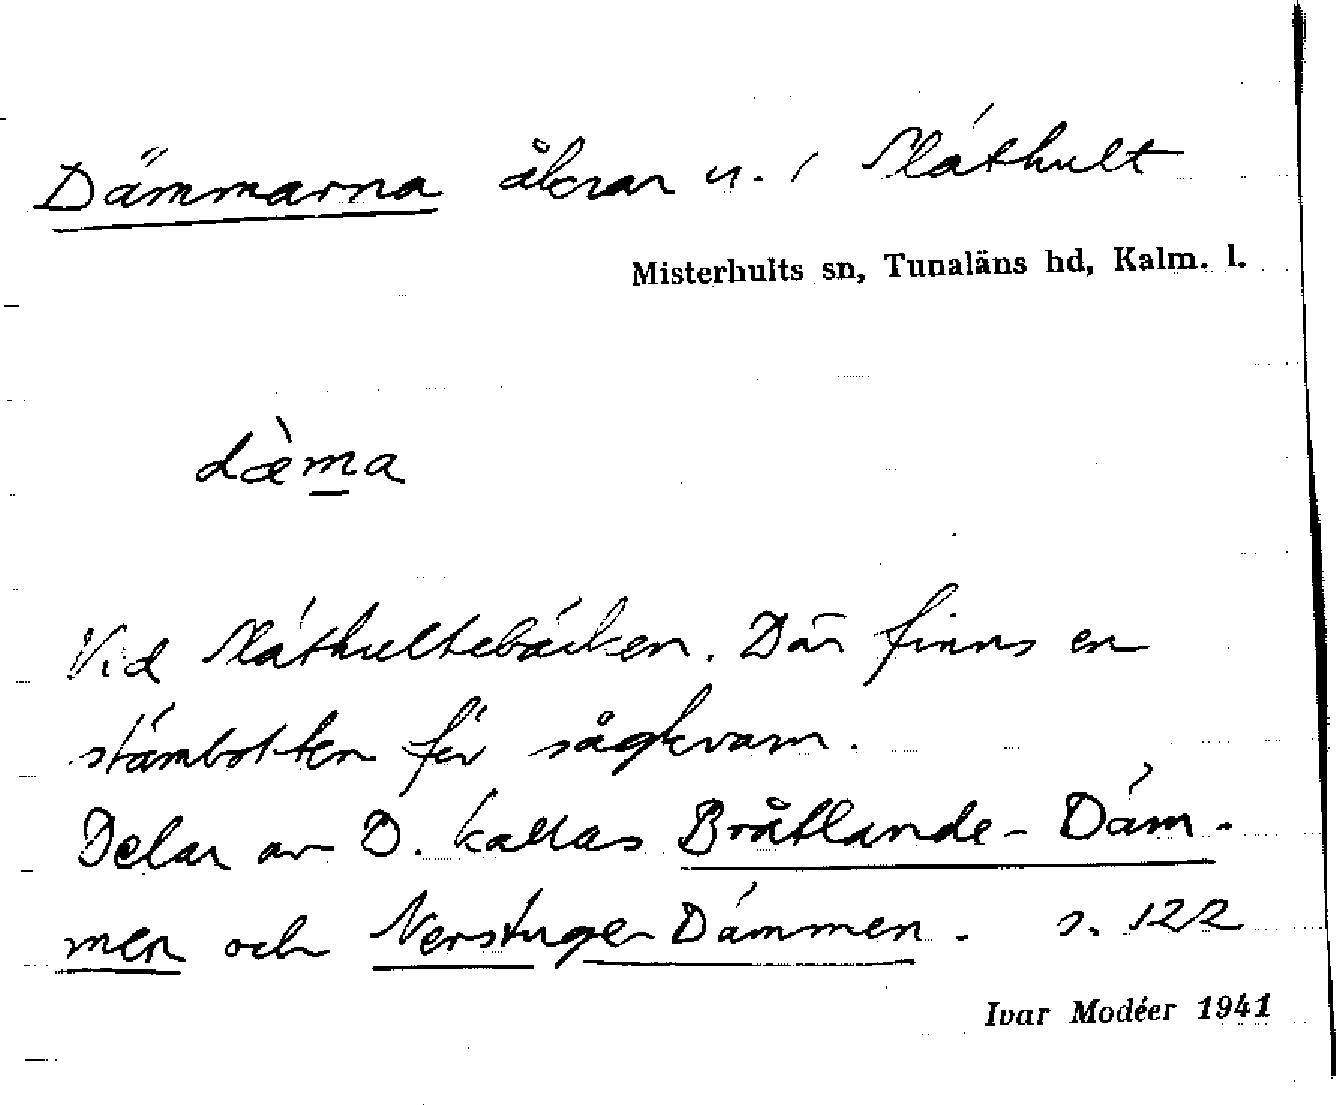 Dämmarna åkrar n. i Släthult
Misterhults sn, Tunaläns hd, Kalm. l.
dæ̀ma
Vid Släthultebäcken. Där finns en
stämbotten för sågkvarn.
Delar av D. kallas Bråtlande-Däm-
men och Nerstuge-Dämmen. s. 122
Ivar Modéer 1941